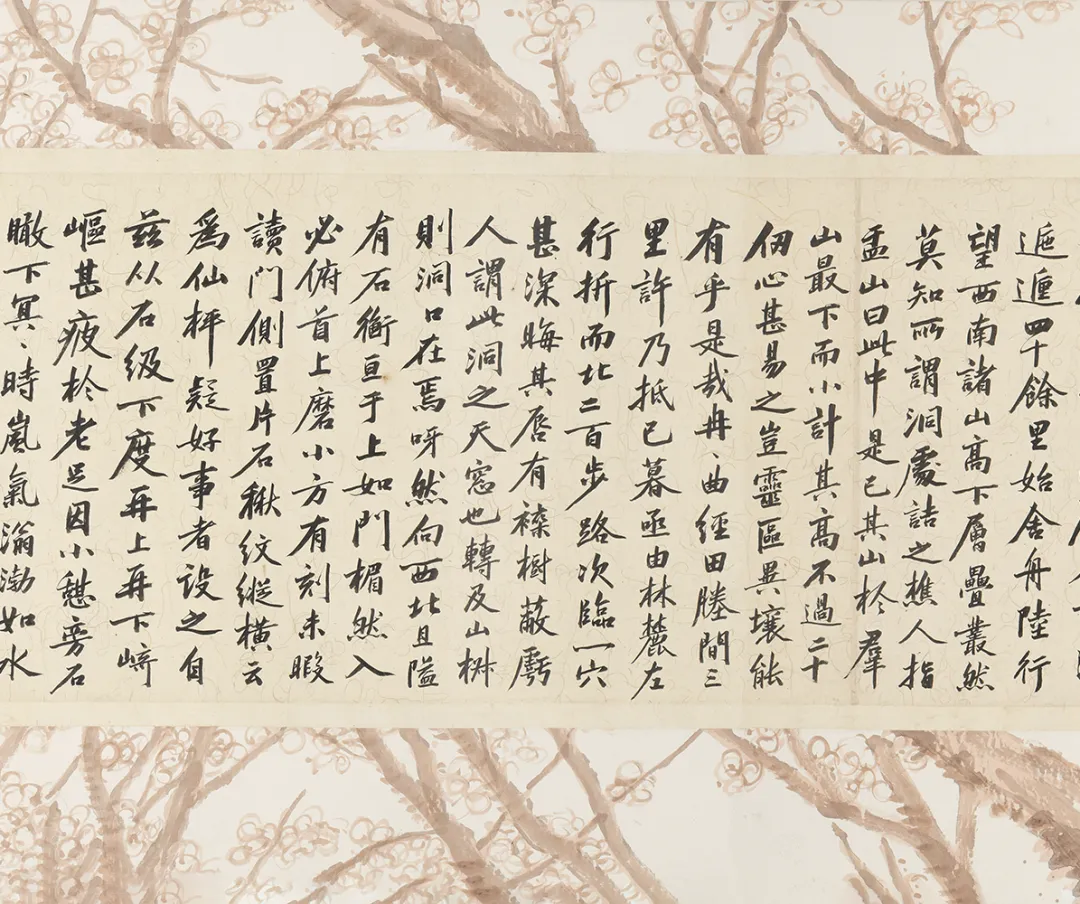 迤邐四十餘里始舍舟陸行
望西南諸山高下層疊叢然
莫知所謂洞處詰之樵人指
盂山曰此中是已其山於羣
山最下而小計其高不過二十
仞心甚易之豈靈區異壤能
有乎是哉冉、曲經田塍間三
里許乃抵已暮亟由林麓左
行折而北二百步路次臨一穴
甚深晦其唇有襍樹蔽虧
人謂此洞之天窓也轉及山椒
則洞口在焉呀然向西北且隘
有石衡亘于上如門楣然入
必俯首上磨小方有刻未暇
讀門側置片石楸紋縱橫云
爲仙枰疑好事者設之自
茲从石級下度再上再下﨑
嶇甚疲於老足因小憇旁石
瞰下冥、時嵐氣滃渤如水